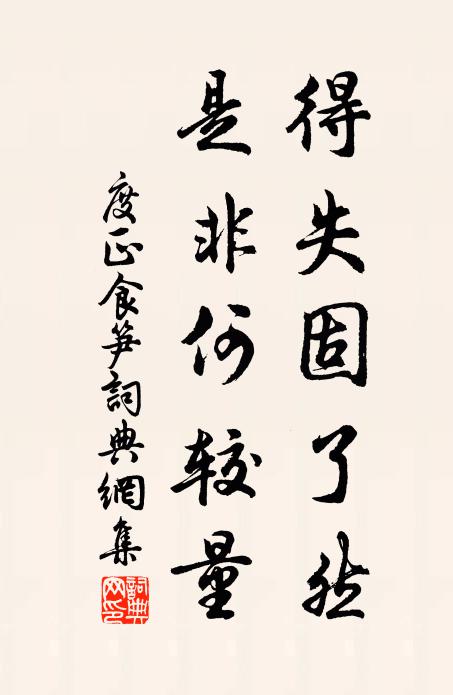 得失固了然
是非何較量
度正食笋詞典網集
詞典网印